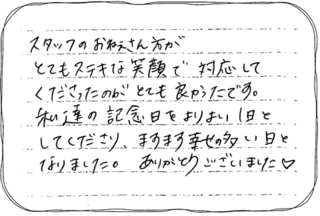 スタッフのおねえさん方が
とてもステキな笑顔で対応して
くださったのがとても良かったです。
私達の記念日をよりよい1日と
してくださり、ますます幸せの多い日と
なりました。ありがとうございました♡